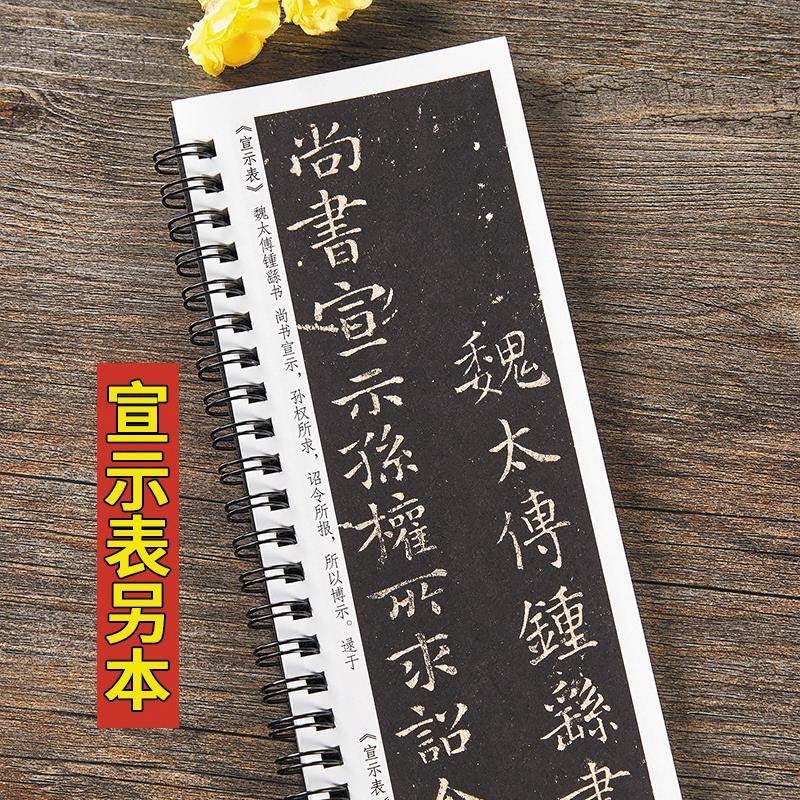 魏太傅鍾繇書
尚書宣示孫權所求詔令
《宣示表》 魏太傅锺繇书 尚书宣示，孙权所求，诏令所报，所以博示。逯于
《宣示表
宣示表另本